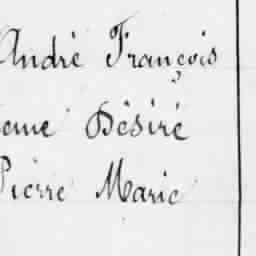 André François
Désiré
Pierre Marie